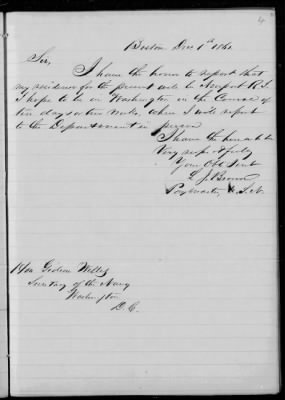 4
Boston Dec 1st 186
Sir,
I have the honor to report that
my residence for the present will be Newport R.I.
I hope to be in Washington in the Course of
ten days or two weeks, when I will report
to the Department in person
I have the honor to be
Very respectfully
Your Obt Servt
L J Brown
Paymaster, U.S.N.
Hon Gideon Welles
Secretary of the Navy
Washington
D.C.